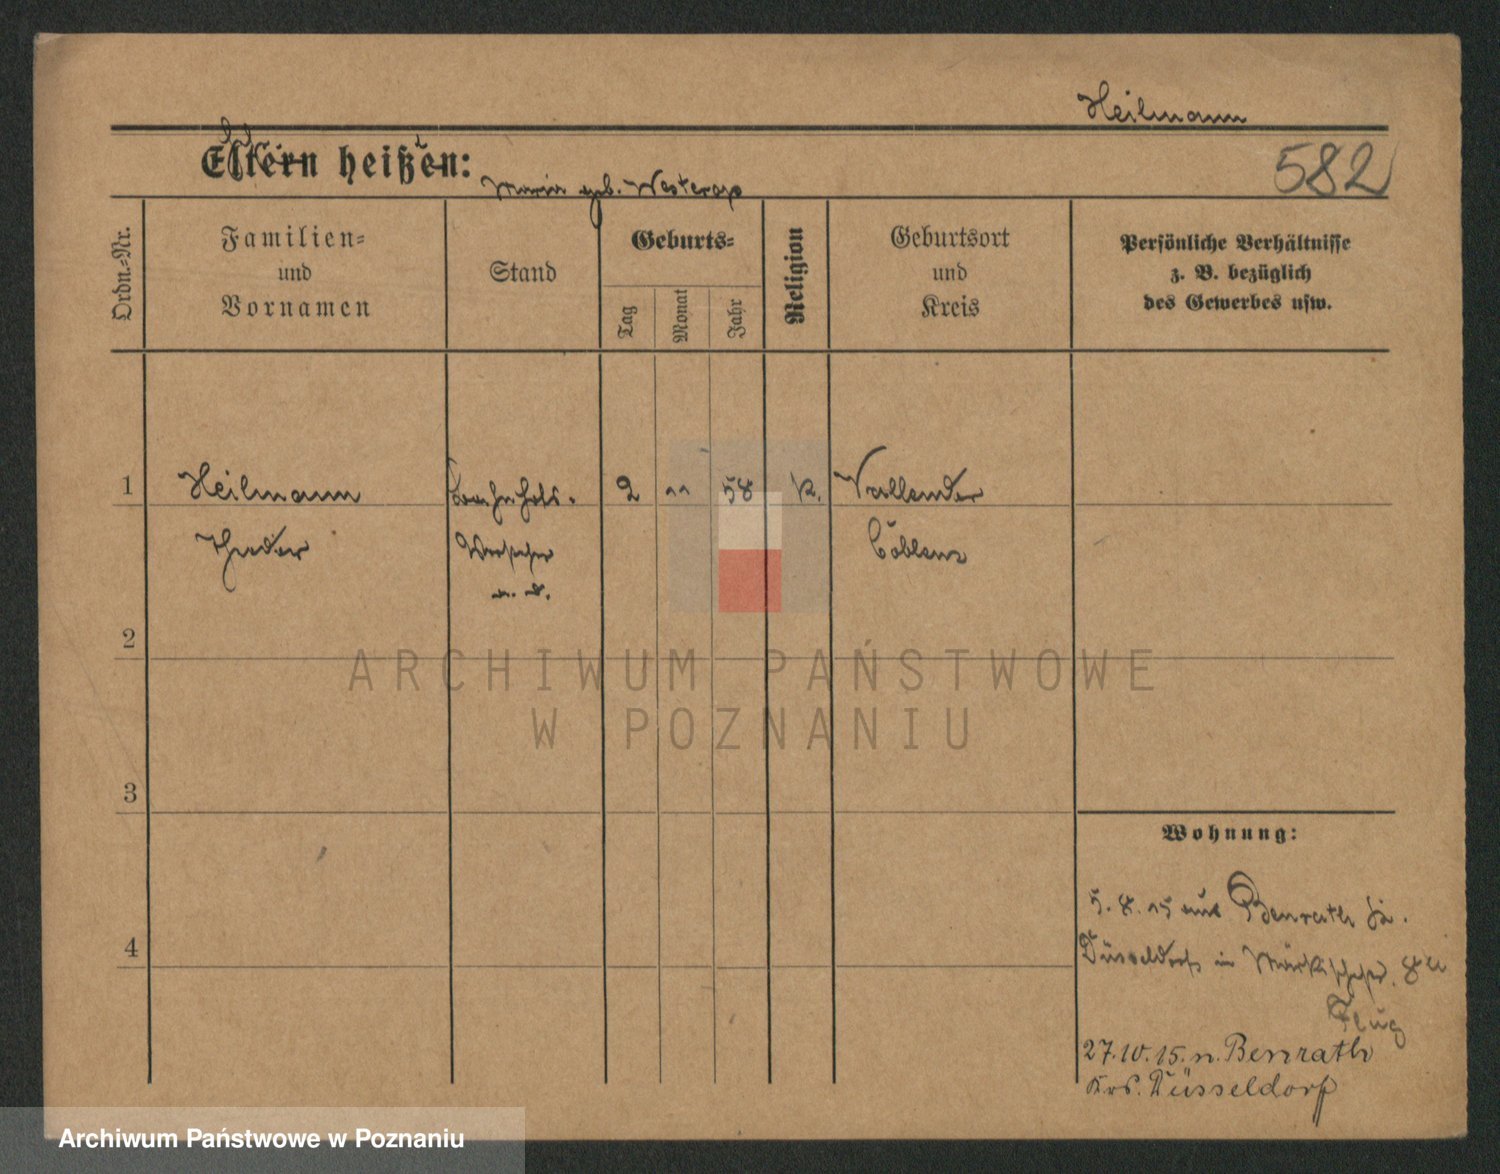 Heilmann
Eltern heißen:
582
Maria geb. Westerop
Ordn.-Nr.
Familien-
und
Vornamen
Stand
Geburts-
Tag
Monat
Jahr
Religion
Geburtsort
und
Kreis
Persönliche Verhältnisse
z. B. bezüglich
des Gewerbes usw.
1 Heilmann Bahnhofs- 2 11 58 K. Vallendar
Theodor Vorsteher Coblenz
a. D.
2
ARCHIWUM PAŃSTWOWE
W POZNANIU
3
Wohnung:
5.8.15 aus Benrath
4
Düsseldorf in
27.10.15. n. Benrath
Krs. Düsseldorf
Archiwum Państwowe w Poznaniu